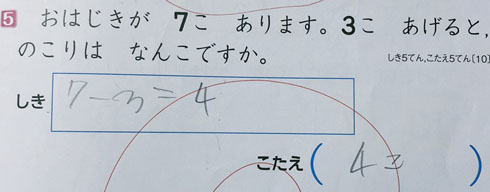 5 おはじきが 7こ あります。3こ あげると,
のこりは なんこですか。
しき5てん,こたえ5てん〔10〕
しき 7-3=4
こたえ( 4こ )